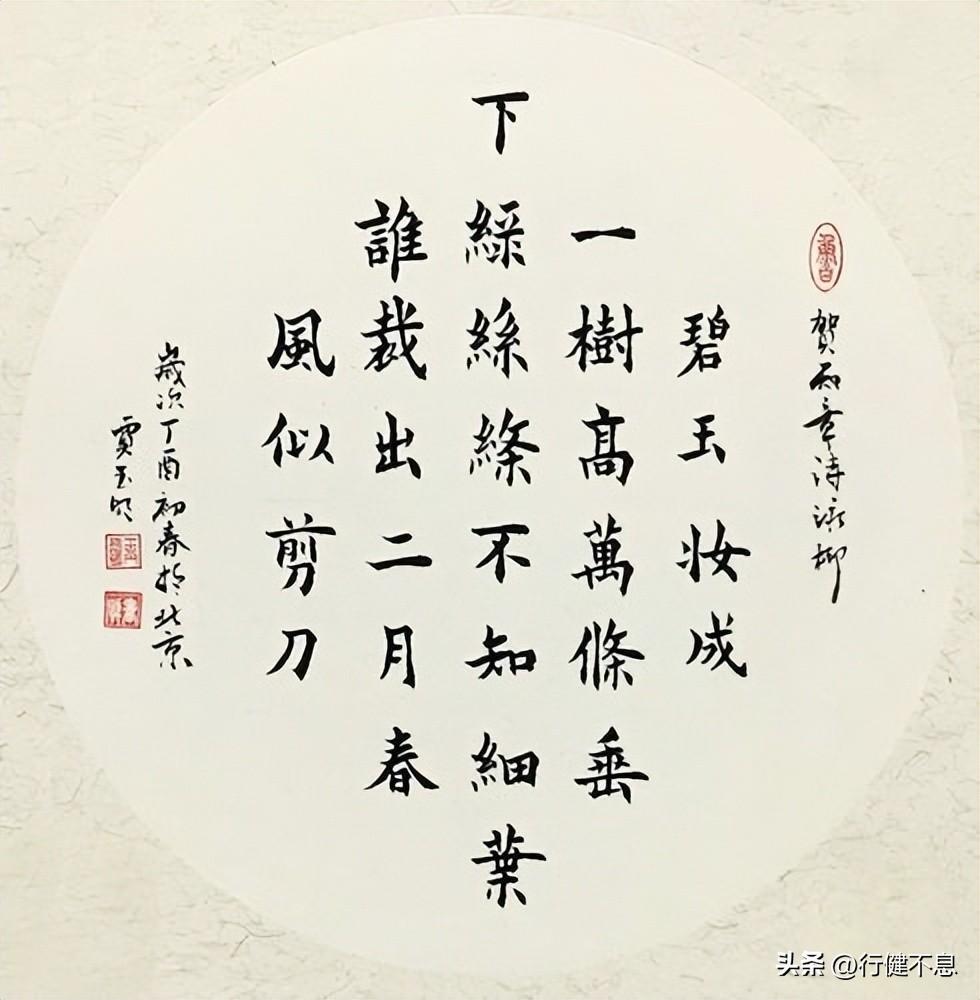 贺知章诗詠柳
碧玉妆成
一樹高萬條垂
下綵絲絛不知細葉
誰裁出二月春
風似剪刀
歲次丁酉初春於北京
頭条 @行健不息